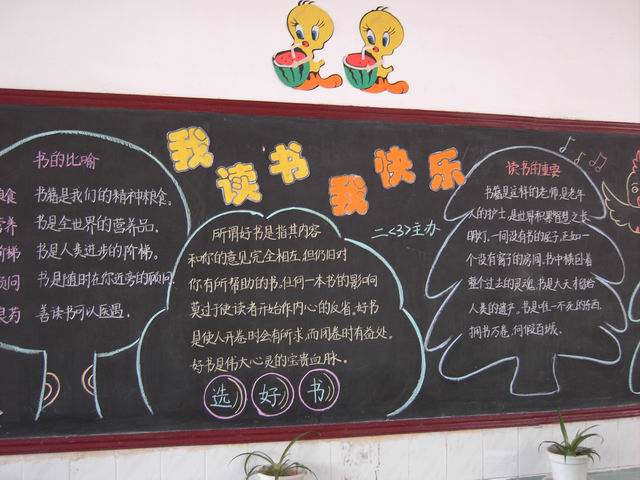 我读书 我快乐
二<3>主办
书的比喻
粮食 书籍是我们的精神粮食。
营养 书是全世界的营养品。
阶梯 书是人类进步的阶梯。
顾问 书是随时在你近旁的顾问.
良药 善读书可以医愚.
所谓好书是指其内容
和你的意见完全相反.但仍旧对
你有所帮助的书.任何一本书的影响
莫过于使读者开始作内心的反省.好书
是使人开卷时会有所求,而闭卷时有益处。
好书是伟大心灵的宝贵血脉。
选好书
读书的重要
书籍是这样的老师.是老年
人的护士.是世界积累智慧之长
明灯.一间没有书的屋子,正如一
个没有窗子的房间.书中横卧着
整个过去的灵魂.书是天才留给
人类的遗产.书是唯一不死的东西.
拥书万卷.何假百城.